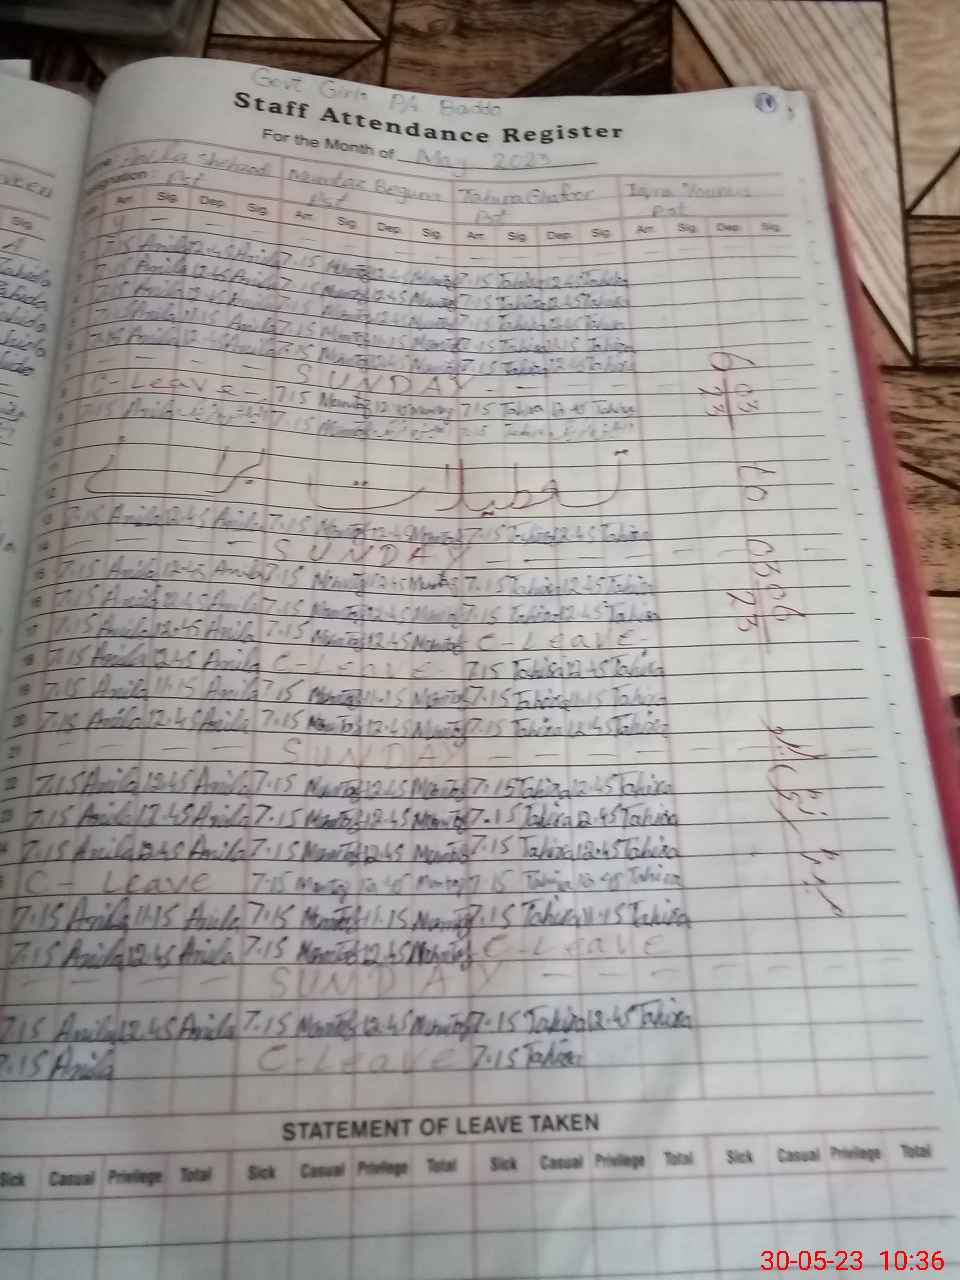 Govt Girls P/s Baddo
Staff Attendance Register
For the Month of May 2023
Anila Shehzadi Mumtaz Begum Tahira Ghafoor Iqra Younus
Designation: Pst Pst Pst Pst
Arr. Sig. Dep. Sig. Arr. Sig. Dep. Sig. Arr. Sig. Dep. Sig. Arr. Sig. Dep. Sig.
7.15 Anila 12.45 Anila 7.15 Mumtaz 12.45 Mumtaz 7.15 Tahira 12.45 Tahira
7.15 Anila 12.45 Anila 7.15 Mumtaz 12.45 Mumtaz 7.15 Tahira 12.45 Tahira
7.15 Anila 12.45 Anila 7.15 Mumtaz 12.45 Mumtaz 7.15 Tahira 12.45 Tahira
7.15 Anila 11.15 Anila 7.15 Mumtaz 11.15 Mumtaz 7.15 Tahira 11.15 Tahira
7.15 Anila 12.45 Anila 7.15 Mumtaz 12.45 Mumtaz 7.15 Tahira 12.45 Tahira
SUNDAY
8 C-Leave 7.15 Mumtaz 12.45 Mumtaz 7.15 Tahira 12.45 Tahira
9 7.15 Anila 7.15 Mumtaz 7.15 Tahira
10
11 تعطیلات برائے
12
13 7.15 Anila 12.45 Anila 7.15 Mumtaz 12.45 Mumtaz 7.15 Tahira 12.45 Tahira
14 SUNDAY
15 7.15 Anila 12.45 Anila 7.15 Mumtaz 12.45 Mumtaz 7.15 Tahira 12.45 Tahira
16 7.15 Anila 12.45 Anila 7.15 Mumtaz 12.45 Mumtaz 7.15 Tahira 12.45 Tahira
17 7.15 Anila 12.45 Anila 7.15 Mumtaz 12.45 Mumtaz C-Leave
18 7.15 Anila 12.45 Anila C-Leave 7.15 Tahira 12.45 Tahira
19 7.15 Anila 11.15 Anila 7.15 Mumtaz 11.15 Mumtaz 7.15 Tahira 11.15 Tahira
20 7.15 Anila 12.45 Anila 7.15 Mumtaz 12.45 Mumtaz 7.15 Tahira 12.45 Tahira
21 SUNDAY
22 7.15 Anila 12.45 Anila 7.15 Mumtaz 12.45 Mumtaz 7.15 Tahira 12.45 Tahira
23 7.15 Anila 12.45 Anila 7.15 Mumtaz 12.45 Mumtaz 7.15 Tahira 12.45 Tahira
7.15 Anila 12.45 Anila 7.15 Mumtaz 12.45 Mumtaz 7.15 Tahira 12.45 Tahira
C-Leave 7.15 Mumtaz 12.45 Mumtaz 7.15 Tahira 12.45 Tahira
7.15 Anila 11.15 Anila 7.15 Mumtaz 11.15 Mumtaz 7.15 Tahira 11.15 Tahira
7.15 Anila 12.45 Anila 7.15 Mumtaz 12.45 Mumtaz C-Leave
SUNDAY
7.15 Anila 12.45 Anila 7.15 Mumtaz 12.45 Mumtaz 7.15 Tahira 12.45 Tahira
7.15 Anila C-Leave 7.15 Tahira
STATEMENT OF LEAVE TAKEN
Sick Casual Privilege Total Sick Casual Privilege Total Sick Casual Privilege Total Sick Casual Privilege Total
30-05-23 10:36